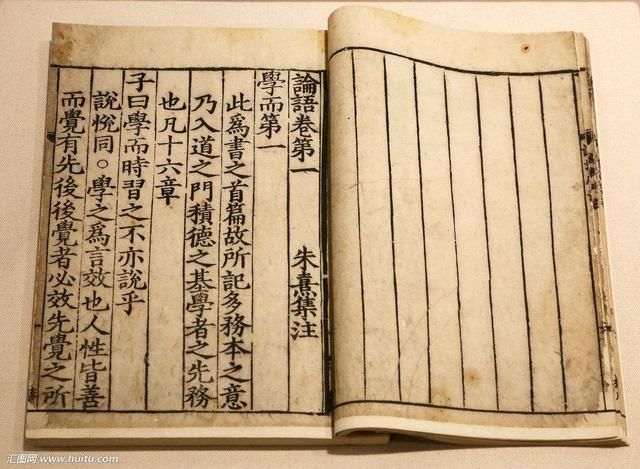 論語卷第一 朱熹集注
學而第一
此爲書之首篇故所記多務本之意
乃入道之門積德之基學者之先務
也凡十六章
子曰學而時習之不亦說乎
說悅同○學之爲言效也人性皆善
而覺有先後後覺者必效先覺之所
汇图网 www.huitu.com